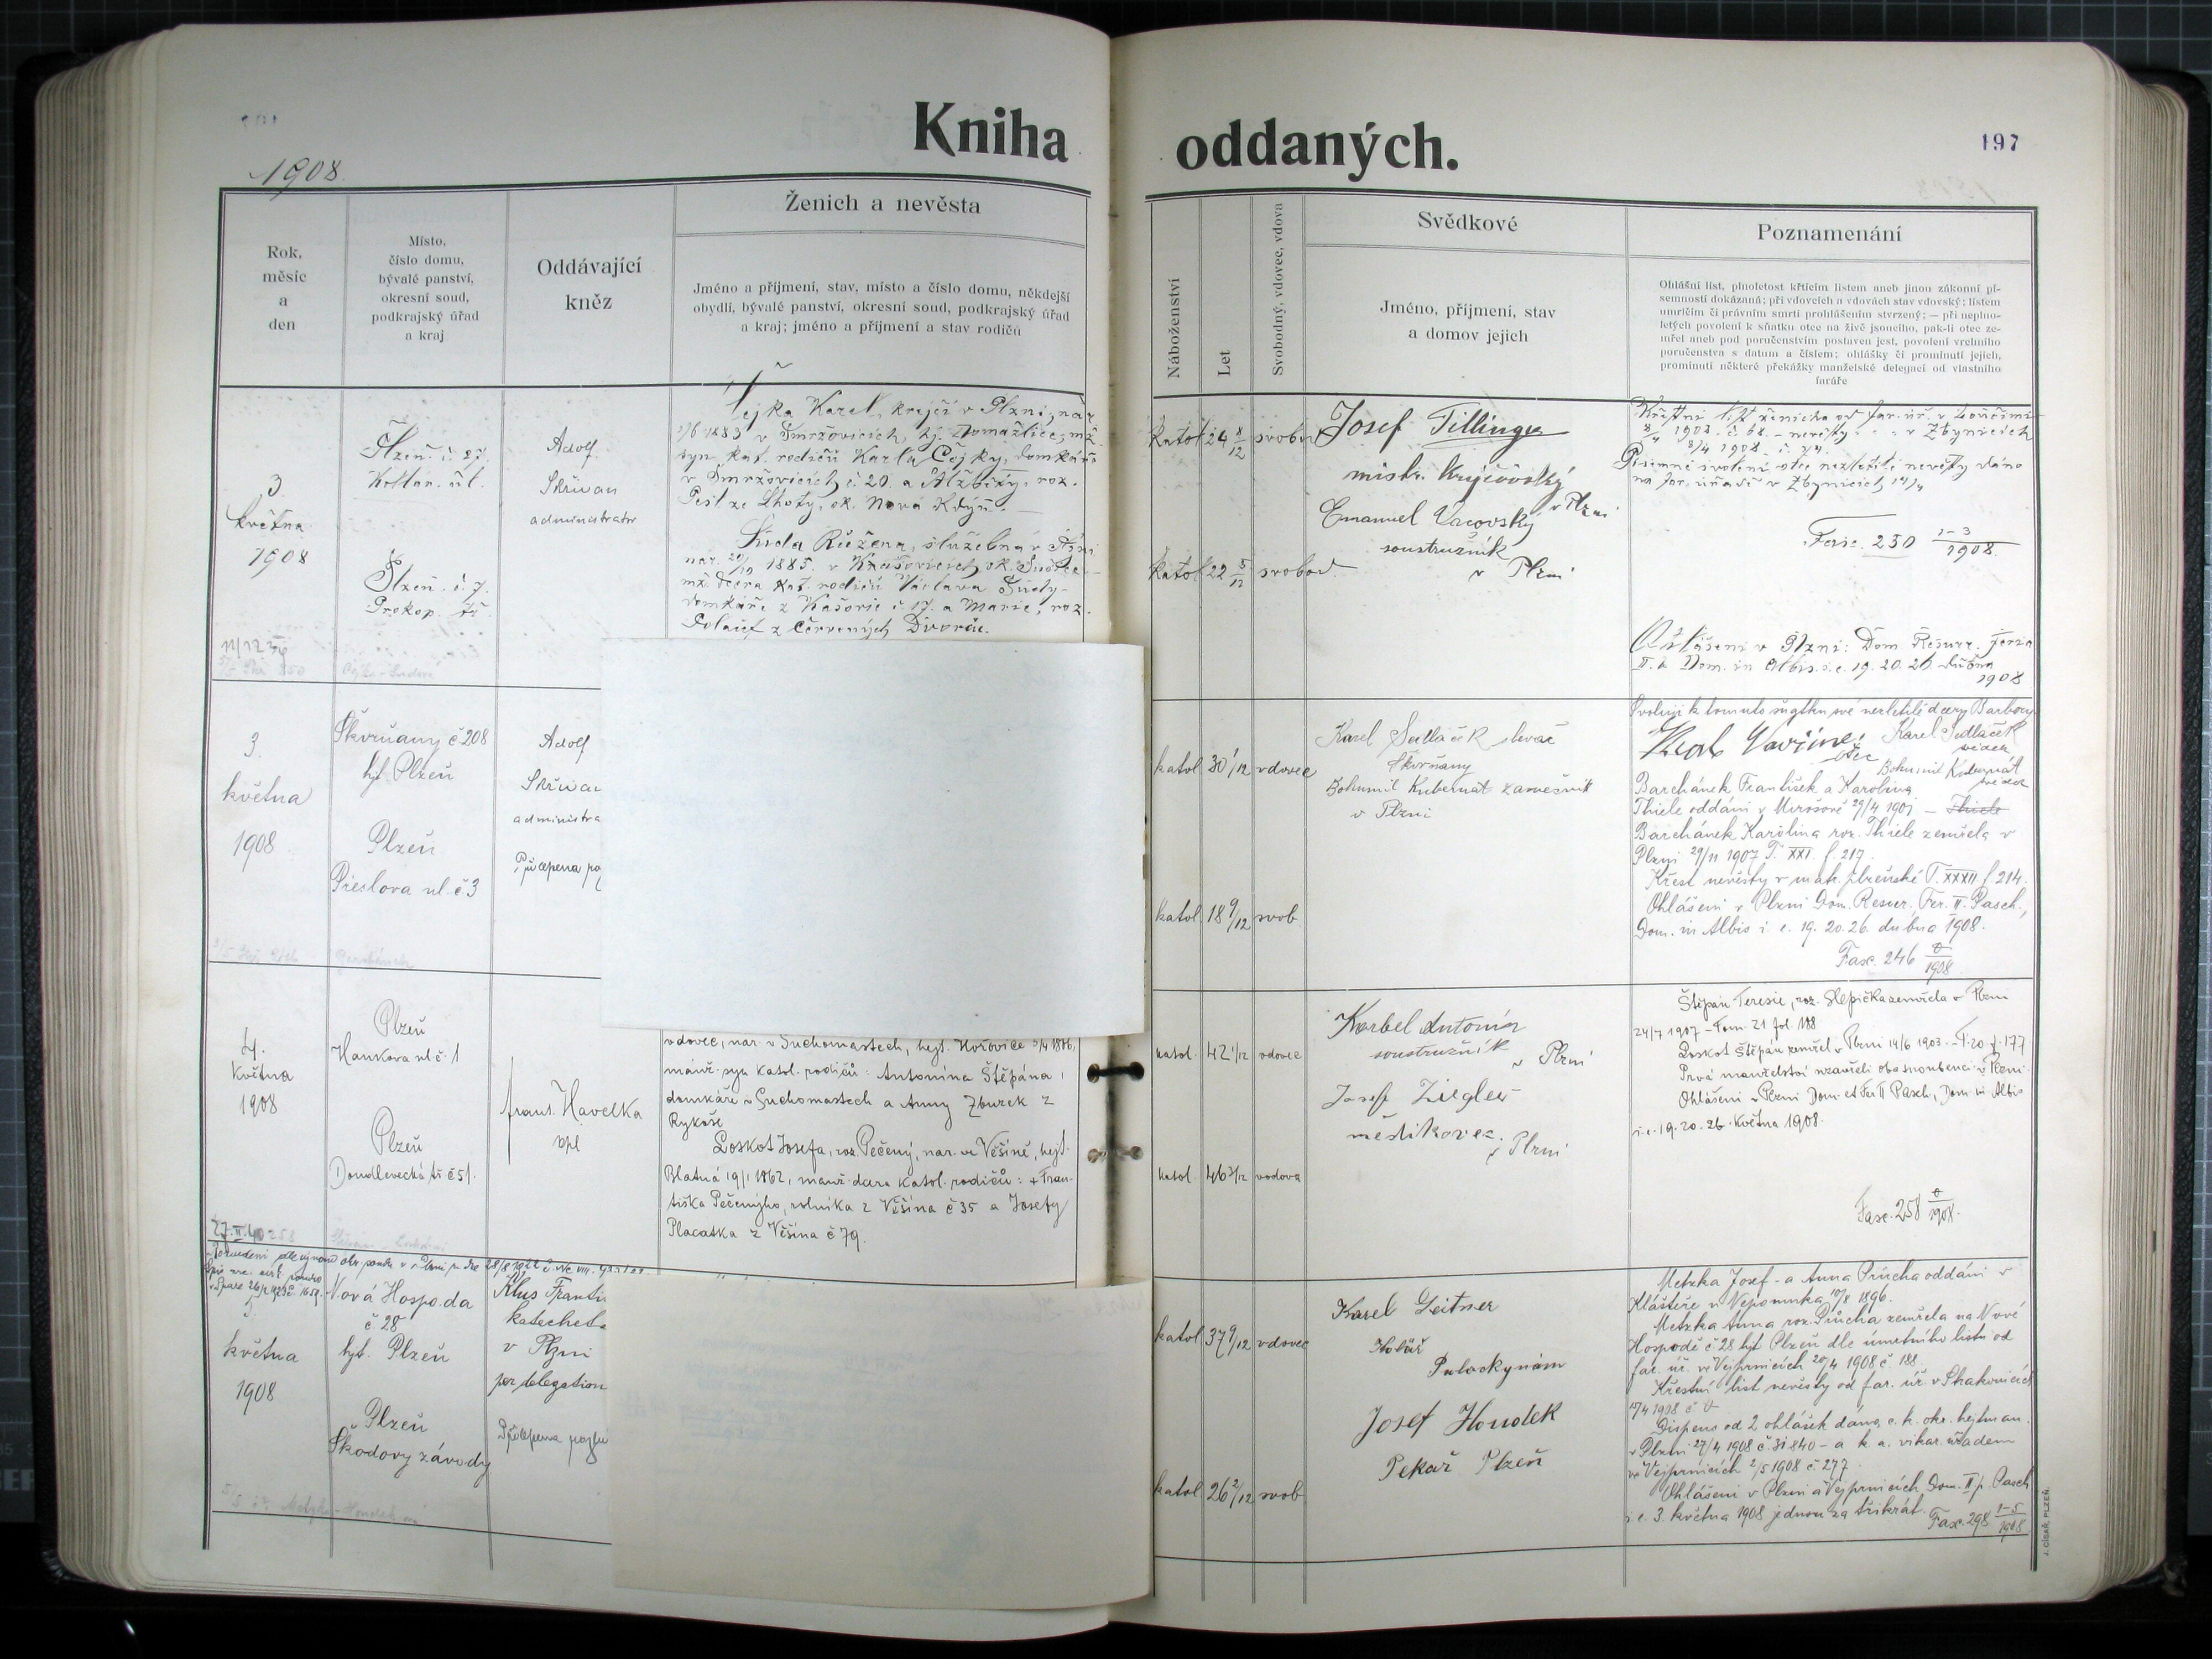 Kniha oddaných.
197
1908.
Rok,
měsíc
a
den
Místo,
číslo domu,
bývalé panství,
okresní soud,
podkrajský úřad
a kraj
Oddávající
kněz
Ženich a nevěsta
Jméno a příjmení, stav, místo a číslo domu, někdejší
obydlí, bývalé panství, okresní soud, podkrajský úřad
a kraj; jméno a příjmení a stav rodičů
Náboženství
Let
Svobodný, vdovec, vdova
Svědkové
Jméno, příjmení, stav
a domov jejich
Poznamenání
Ohlášní list, plnoletost křticím listem aneb jinou zákonní pí-
semností dokázaná; při vdovcích a vdovách stav vdovský; listem
umrlčím či právním smrti prohlášením stvrzený; — při neplno-
letých povolení k sňatku otce na živě jsoucího, pak-li otec ze-
mřel aneb pod poručenstvím postaven jest, povolení vrchního
poručenstva s datum a číslem; ohlášky či prominutí jejich,
prominutí některé překážky manželské delegací od vlastního
faráře
3
května
1908
Plzeň. č. 27.
Plzeň. č. 7.
Prokop. tř.
Adolf
Skřivan
administrator
Čejka Karel, krejčí v Plzni, nar.
1883 v Smržovicích, hj. Domažlice, mž.
syn kat. rodičů Karla Čejky, domkáře
v Smržovicích č 20. a Alžběty, roz.
Pešl ze Lhoty, ok. Nová Kdyň. —
Suda Růžena, služebná v Plzni
nar. 1885. v ok. Sušice
mž. dcera kat. rodičů Václava Sudy
domkáře z č. 17. a Marie, roz.
z Červených Dvorců.
katol 24 8/12 svobod
katol 22 5/12 svobod
Josef Tillinger
mistr. krejčovský
v Plzni
Emanuel Vacovský
soustružník
v Plzni
Křestní list ženicha od far. úř. v Loučimi
1908. č. 68. - nevěsty v Zbynicích
8/4 1908
Písemné svolení otce nezletilé nevěsty dáno
na far. úřadě v Zbynicích
Fasc. 230 1-3/1908.
Ohlášeni v Plzni: Dom. Resurr. feria
II. a Dom. in Albis i. e. 19. 20. 26. dubna
1908
3.
května
1908
Škvrňany č 208
hjt Plzeň
Plzeň
Pieslova ul. č 3
Adolf
Skřivan
administra
Přilepena
katol 30 1/12 vdovec
katol 18 9/12 svob.
Karel Sedláček slevač
Škvrňany
Bohumil Kubernát zámečník
v Plzni
Svoluji k tomuto sňatku své nezletilé dcery Barbory
otec
Karel Sedláček
svědek
Bohumil Kubernát
svědek
Barchánek František a Karolina
Thiele oddáni v Mirošově 29/4 1901 — Thiele
Barchánek Karolina roz. Thiele zemřela v
Plzni 29/11 1907 T. XXI. f. 217.
Křest nevěsty v mat. plzeňské T. XXXII f. 214.
Ohlášeni v Plzni Dom. Resur. Fer. II. Pasch.,
Dom. in Albis i. e. 19. 20. 26. dubna 1908.
Fasc. 246 1908
4.
května
1908
Plzeň
Hankova ul č. 1
Plzeň
Doudlevecká tř č 51.
Frant. Havelka
kpl
vdovec, nar. v Suchomastech, hejt. Hořovice 1866,
manž. syn katol. rodičů: Antonína Štěpána,
domkáře v Suchomastech a Anny Zburek z
Rykoše
Loskot Josefa, roz. Pečený, nar. ve Věšíně, hejt.
Blatná 19/1 1862, manž. dcera katol. rodičů: + Fran-
tiška Pečenýho, rolníka z Věšína č 35 a Josefy
Placatka z Věšína č 79.
katol. 42 1/12 vdovec
katol. 46 3/12 vdova
Korbel Antonín
soustružník
v Plzni
Josef Ziegler
v Plzni
Štěpán Teresie, roz. Slepička zemřela v Plzni
24/7 1907 - Tom. 21 fol. 188
Loskot Štěpán zemřel v Plzni 14/6 1903. - T. 20 f. 177
Prvá manželství uzavřeli oba snoubenci v Plzni.
Ohlášeni v Plzni Dom. et Fer II Pasch, Dom. in Albis
i. e. 19. 20. 26. května 1908.
Fasc. 258 1908.
27.II.40
5
května
1908
Nová Hospoda
č 28
hjt. Plzeň
Plzeň
Škodovy závody
Klus Franti
katecheta
v Plzni
per delegation
Přilepena
katol 37 9/12 vdovec
katol 26 2/12 svob.
Karel Leitner
Kolář
Palackynám
Josef Houdek
Pekař Plzeň
Metzka Josef - a Anna Průcha oddáni v
Klášteře u Nepomuka 10/8 1896.
Metzka Anna roz. Průcha zemřela na Nové
Hospodě č 28 hjt Plzeň dle úmrtního listu od
far. úř. ve Vejprnicích 20/4 1908 č 188.
Křestní list nevěsty od far. úř. v Strakonicích
1908 č
Dispens od 2 ohlášek dána c. k. okr. hejtman.
v Plzni 27/4 1908 č. 31840 - a k. a. vikar. úřadem
ve Vejprnicích 2/5 1908 č. 277
Ohlášeni v Plzni a Vejprnicích Dom. II p. Pasch
i. e. 3. května 1908 jednou za třikrát. Fasc. 298 1-5/1908
J. CÍSAŘ, PLZEŇ.